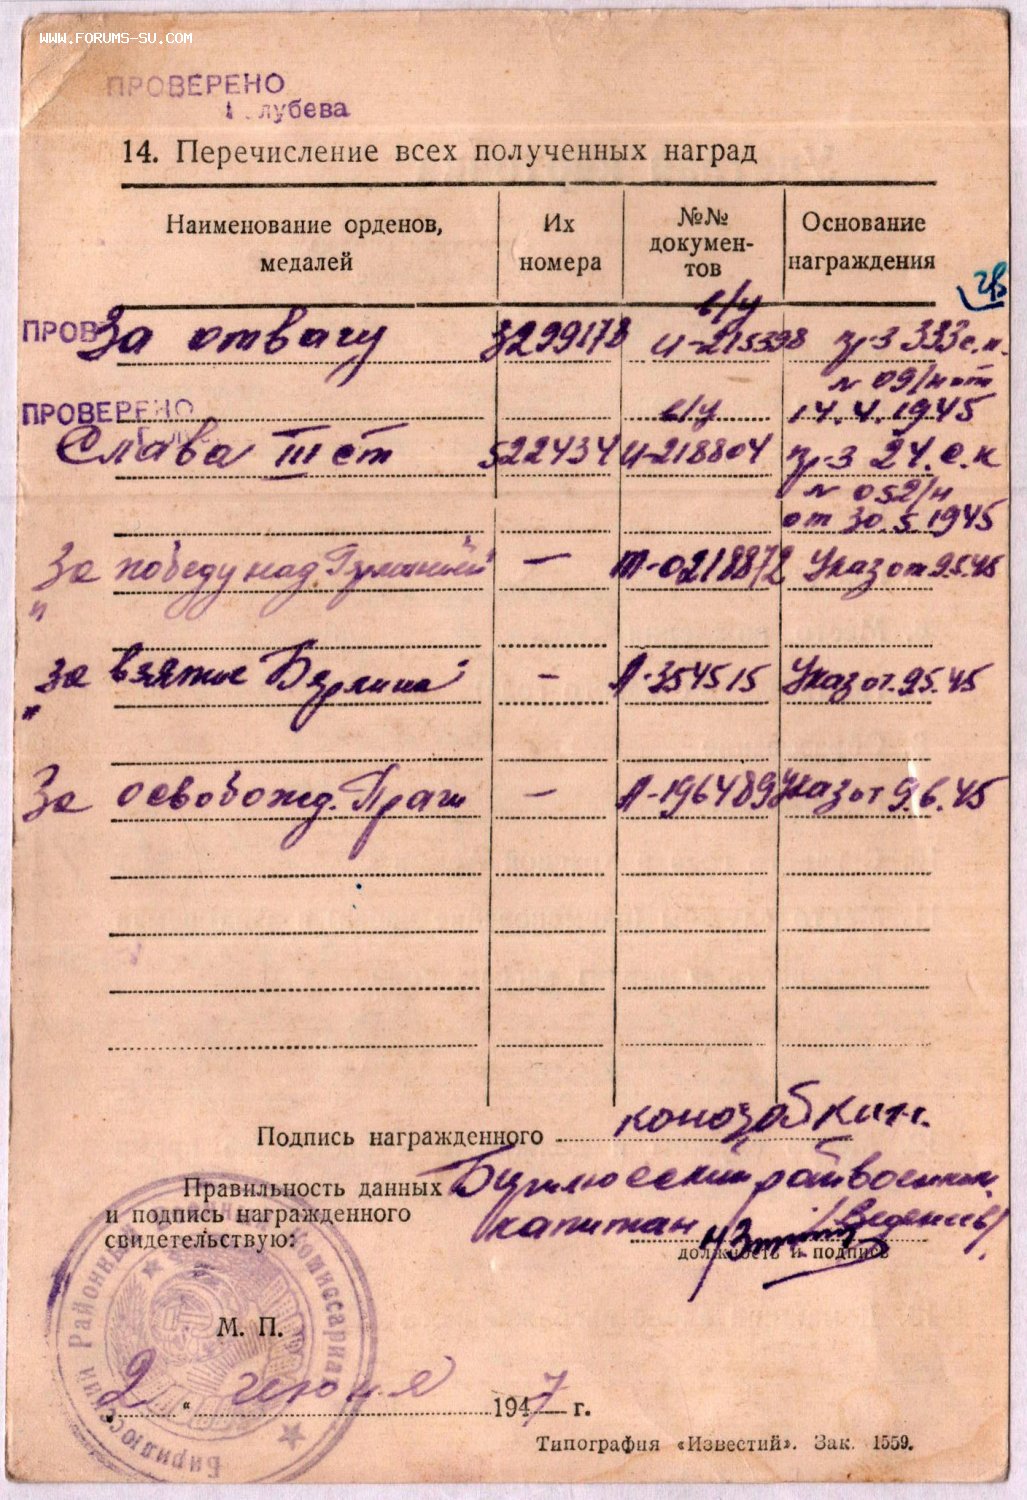 WWW.FORUMS-SU.COM
ПРОВЕРЕНО
лубева
14. Перечисление всех полученных наград
Наименование орденов, медалей
Их номера
№№ докумен-тов
Основание награждения
ПРОВ За отвагу 3299178 в/у И-215398 пр-з 333 с.п.
№ 09/н от
14.4.1945
ПРОВЕРЕНО
Слава III ст 522434 в/у И-218804 пр-з 24.с.к
№ 052/н
от 30.5.1945
За победу над Германией — Т-0218872 Указ от 9.5.45
"
За взятие Берлина — А-354515 Указ от 9.5.45
"
За освобожд. Праги — А-196489 Указ от 9.6.45
Подпись награжденного
Правильность данных Бирилюсский райвоенком
и подпись награжденного капитан
свидетельствую:
должность и подпись
Бирилюсский Районный Комиссариат
М. П.
„ 2 “ июня 1947 г.
Типография «Известий». Зак. 1559.